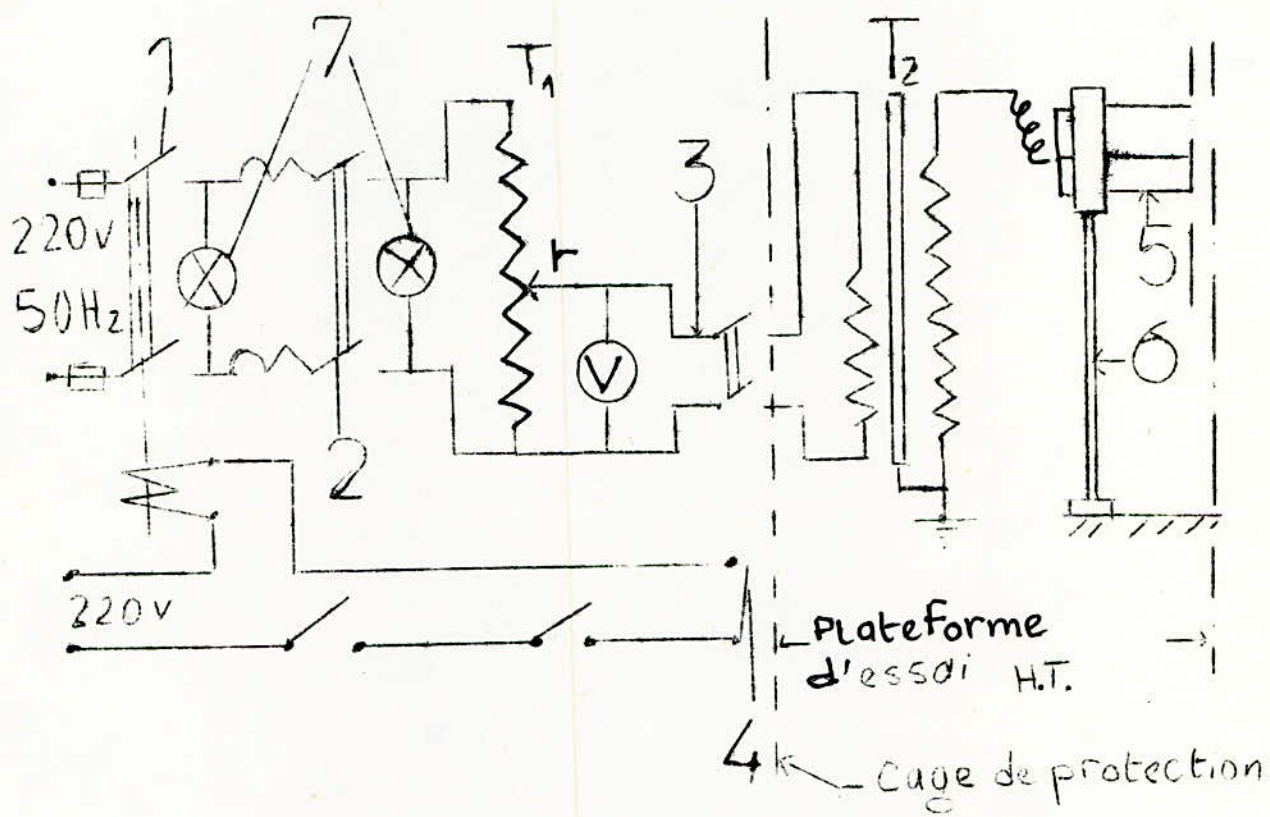 1
7
T1
T2
3
220v
50Hz
r
V
5
6
2
220v
Plateforme
d'essai H.T.
4
Cage de protection